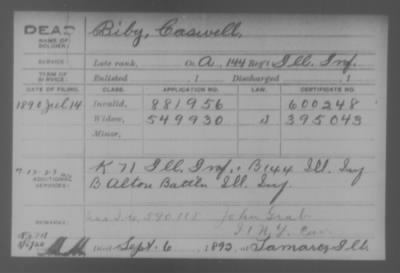 DEAD Biby, Caswell,
NAME OF SOLDIER:
SERVICE: Late rank, Co. A, 144 Reg't Ill. Inf.
TERM OF SERVICE: Enlisted , 1 Discharged , 1
DATE OF FILING. CLASS. APPLICATION NO. LAW. CERTIFICATE NO.
1890 Jul 14 Invalid, 881956 600248
Widow, 549930 395043
Minor,
ADDITIONAL SERVICES: K 71 Ill. Inf.; B 144 Ill. Inf
B Alton Batt'n Ill. Inf.
REMARKS: John
Died Sept. 6, 1892, at Tamaroa Ill.